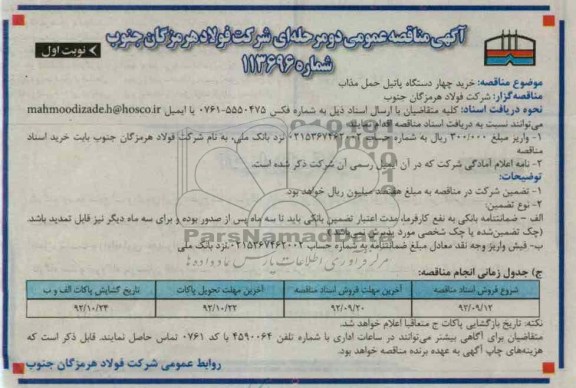 آگهی مناقصه عمومی دو مرحله‌ای شرکت فولاد هرمزگان جنوب
شماره ۱۱۳۶۹۶
نوبت اول
موضوع مناقصه: خرید چهار دستگاه پاتیل حمل مذاب
مناقصه‌گزار: شرکت فولاد هرمزگان جنوب
نحوه دریافت اسناد: کلیه متقاضیان با ارسال اسناد ذیل به شماره فکس ۵۵۵۰۴۷۵-۰۷۶۱ یا ایمیل mahmoodizade.h@hosco.ir
می‌توانند نسبت به دریافت اسناد مناقصه اقدام نمایند.
۱- واریز مبلغ ۳۰۰/۰۰۰ ریال به شماره حساب ۰۲۱۵۳۶۷۴۶۲۰۰۲ نزد بانک ملی، به نام شرکت فولاد هرمزگان جنوب بابت خرید اسناد
مناقصه
۲- نامه اعلام آمادگی شرکت که در آن ایمیل رسمی آن شرکت ذکر شده است.
توضیحات:
۱- تضمین شرکت در مناقصه به مبلغ هفتصد میلیون ریال خواهد بود.
۲- نوع تضمین:
الف - ضمانتنامه بانکی به نفع کارفرما، مدت اعتبار تضمین بانکی باید تا سه ماه پس از صدور بوده و برای سه ماه دیگر نیز قابل تمدید باشد.
(چک تضمین‌شده یا چک شخصی مورد پذیرش نمی‌باشد)
ب- فیش واریز وجه نقد معادل مبلغ ضمانتنامه به شماره حساب ۰۲۱۵۳۶۷۴۶۲۰۰۲ نزد بانک ملی
ParsNamadData
مرکز فرآوری اطلاعات پارس نماد داده‌ها
ج) جدول زمانی انجام مناقصه:
شروع فروش اسناد مناقصه	آخرین مهلت فروش اسناد مناقصه	آخرین مهلت تحویل پاکات	تاریخ گشایش پاکات الف و ب
۹۲/۰۹/۱۲	۹۲/۰۹/۲۰	۹۲/۱۰/۲۲	۹۲/۱۰/۲۴
نکته: تاریخ بازگشایی پاکات ج متعاقبا اعلام خواهد شد.
متقاضیان برای آگاهی بیشتر می‌توانند در ساعات اداری با شماره تلفن ۴۵۹۰۰۶۴ با کد ۰۷۶۱ تماس حاصل نمایند. قابل ذکر است که
هزینه‌های چاپ آگهی به عهده برنده مناقصه خواهد بود.
روابط عمومی شرکت فولاد هرمزگان جنوب